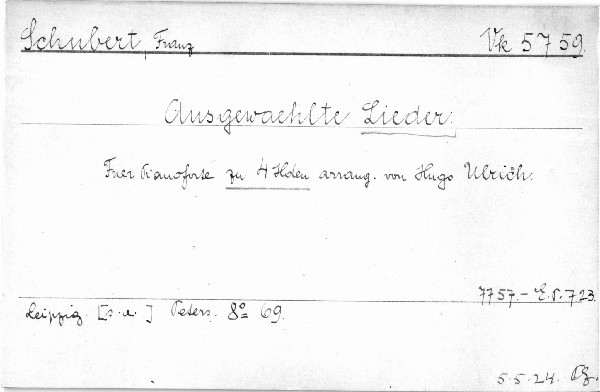 Schubert, Franz Vk 5759.
Ausgewaehlte Lieder.
Fuer Pianoforte zu 4 Hden arrang. von Hugo Ulrich.
7757.- E.P. 723.
Leipzig. [s.a.] Peters. 8° 69.
5.5.24.